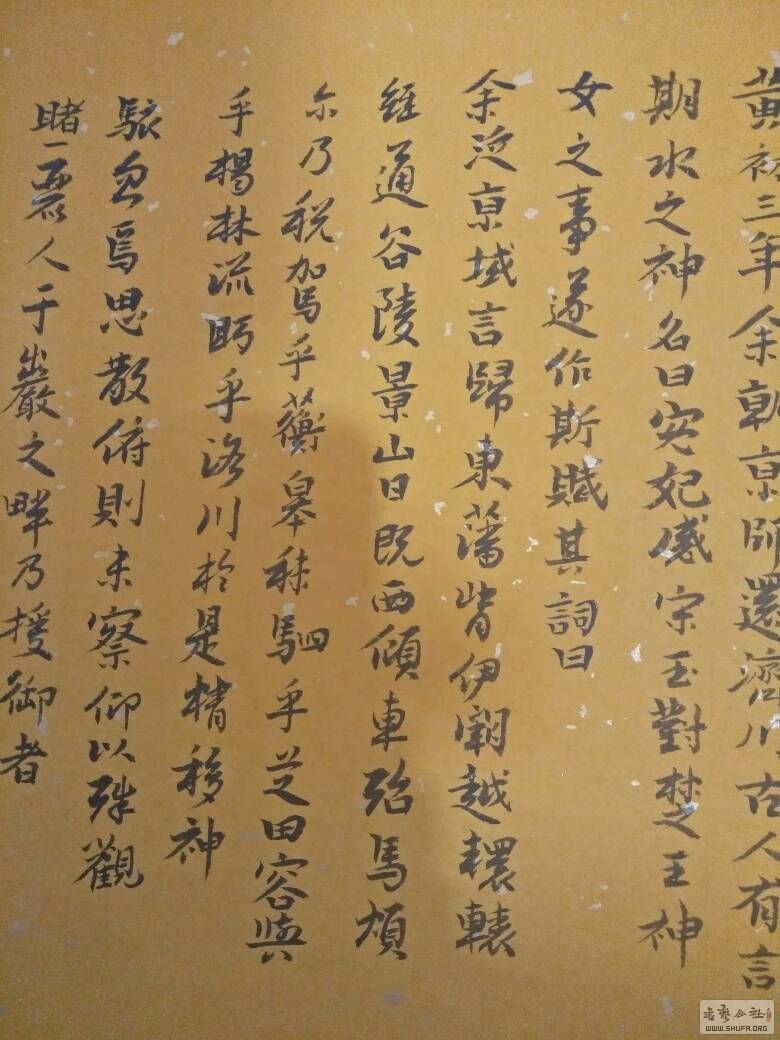 黄初三年余朝京師還濟川古人有言
期水之神名曰宓妃感宋玉對楚王神
女之事遂作斯賦其詞曰
余從京域言歸東藩背伊闕越轘轅
經通谷陵景山日既西傾車殆馬煩
尔乃税駕乎蘅皋秣駟乎芝田容與
乎楊林流眄乎洛川於是精移神
駭忽焉思散俯則未察仰以殊觀
睹一麗人于巖之畔乃援御者
書藝公社
WWW.SHUFA.ORG